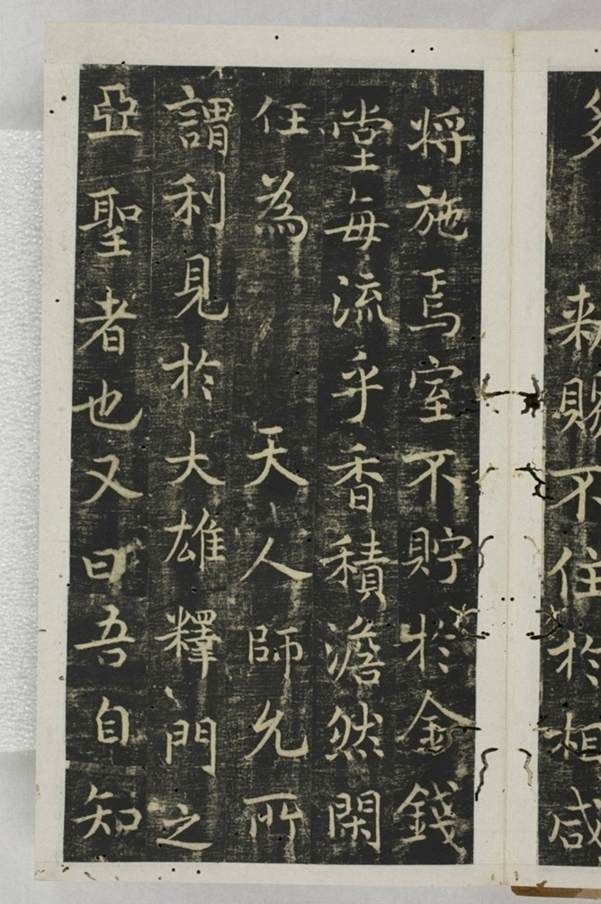 多 来賜不住於相咸
将施焉室不貯於金錢
堂每流乎香積澹然閑
任為 天人師允所
謂利見於大雄釋門之
亞聖者也又曰吾自知